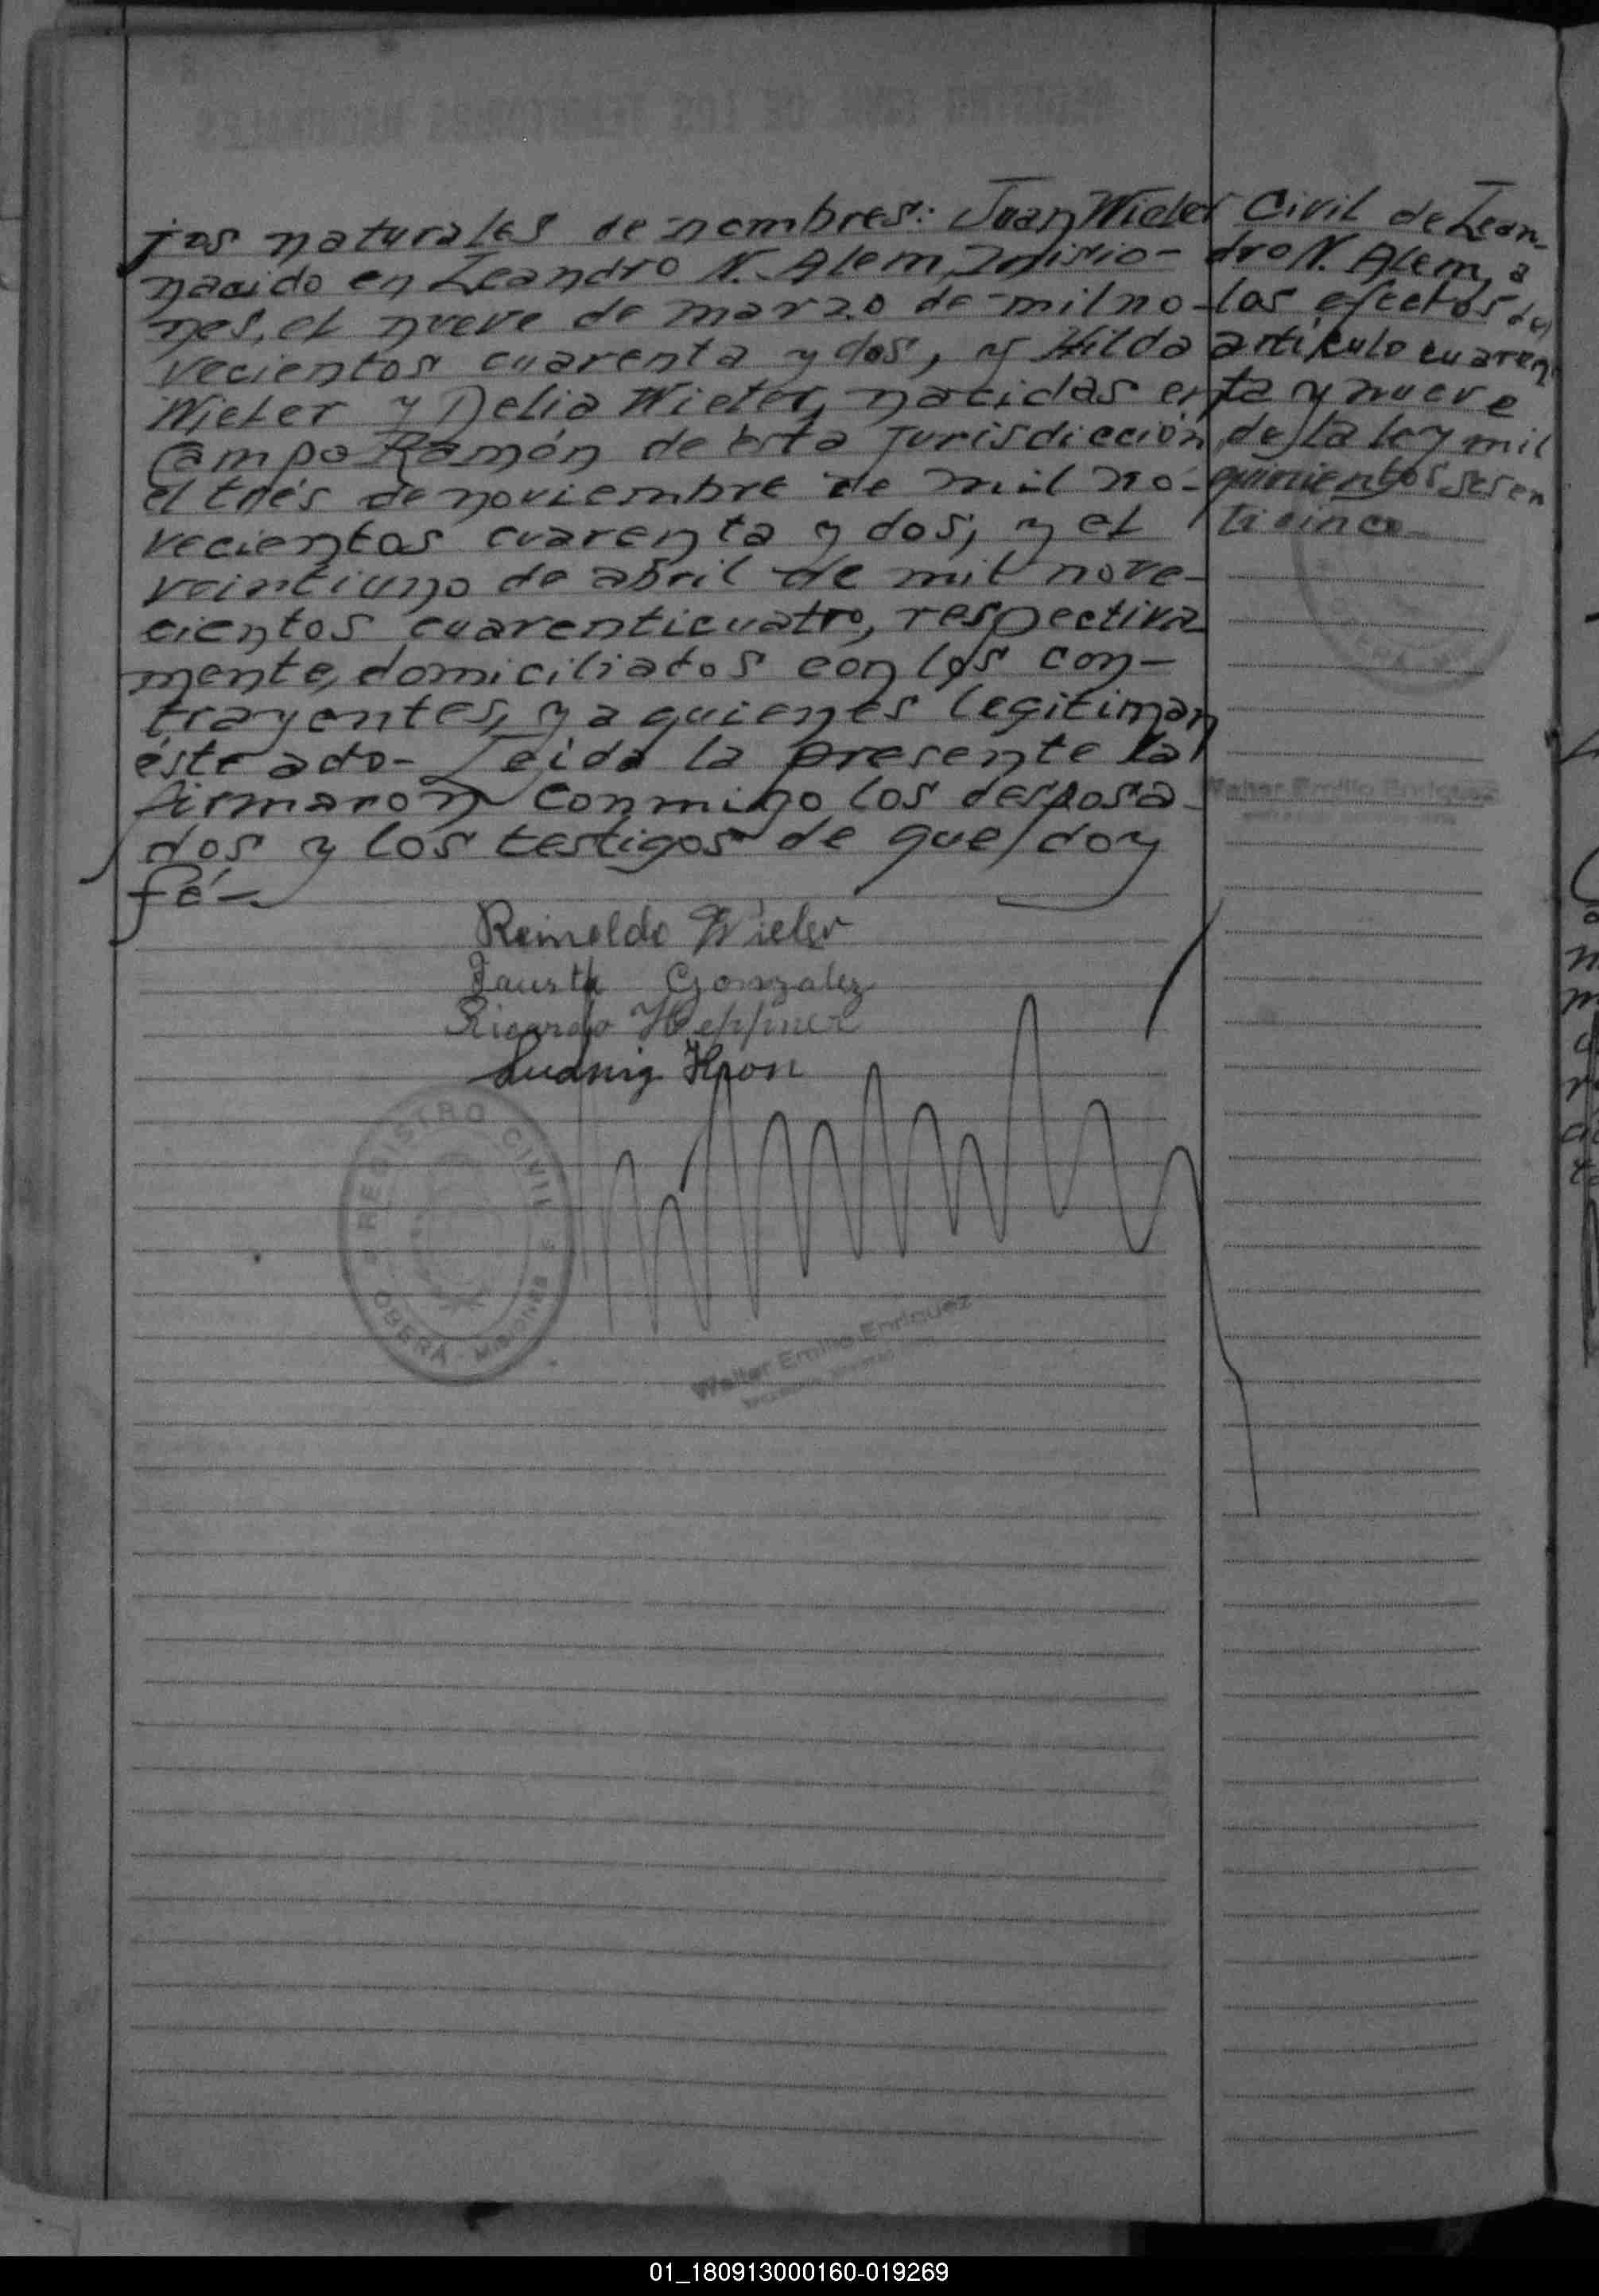 jos naturales de nombres: Juan Wieler
nacido en Leandro N. Alem, Misio-
nes, el nueve de marzo de mil no-
vecientos cuarenta y dos, y Hilda
Wieler y Delia Wieler, nacidas en
Campo Ramón de ésta jurisdicción,
el trés de noviembre de mil no-
vecientos cuarenta y dos; y el
veintiuno de abril de mil nove-
cientos cuarenticuatro, respectiva
mente, domiciliados con los con-
trayentes, y a quienes legitiman
éste acto- Leida la presente la
firmaron conmigo los desposa
dos y los testigos de que doy
fé-
Reinoldo Wieler
Gonzalez
Ricardo Heppner
Ludwig Kron
REGISTRO CIVIL
OBERÁ - MISIONES
Walter Emilio Enriquez
Civil de Lean-
dro N. Alem, a
los efectos del
artículo cuaren
ta y nueve
de la ley mil
quinientos sesen
ticinco
Walter Emilio Enriquez
01_180913000160-019269